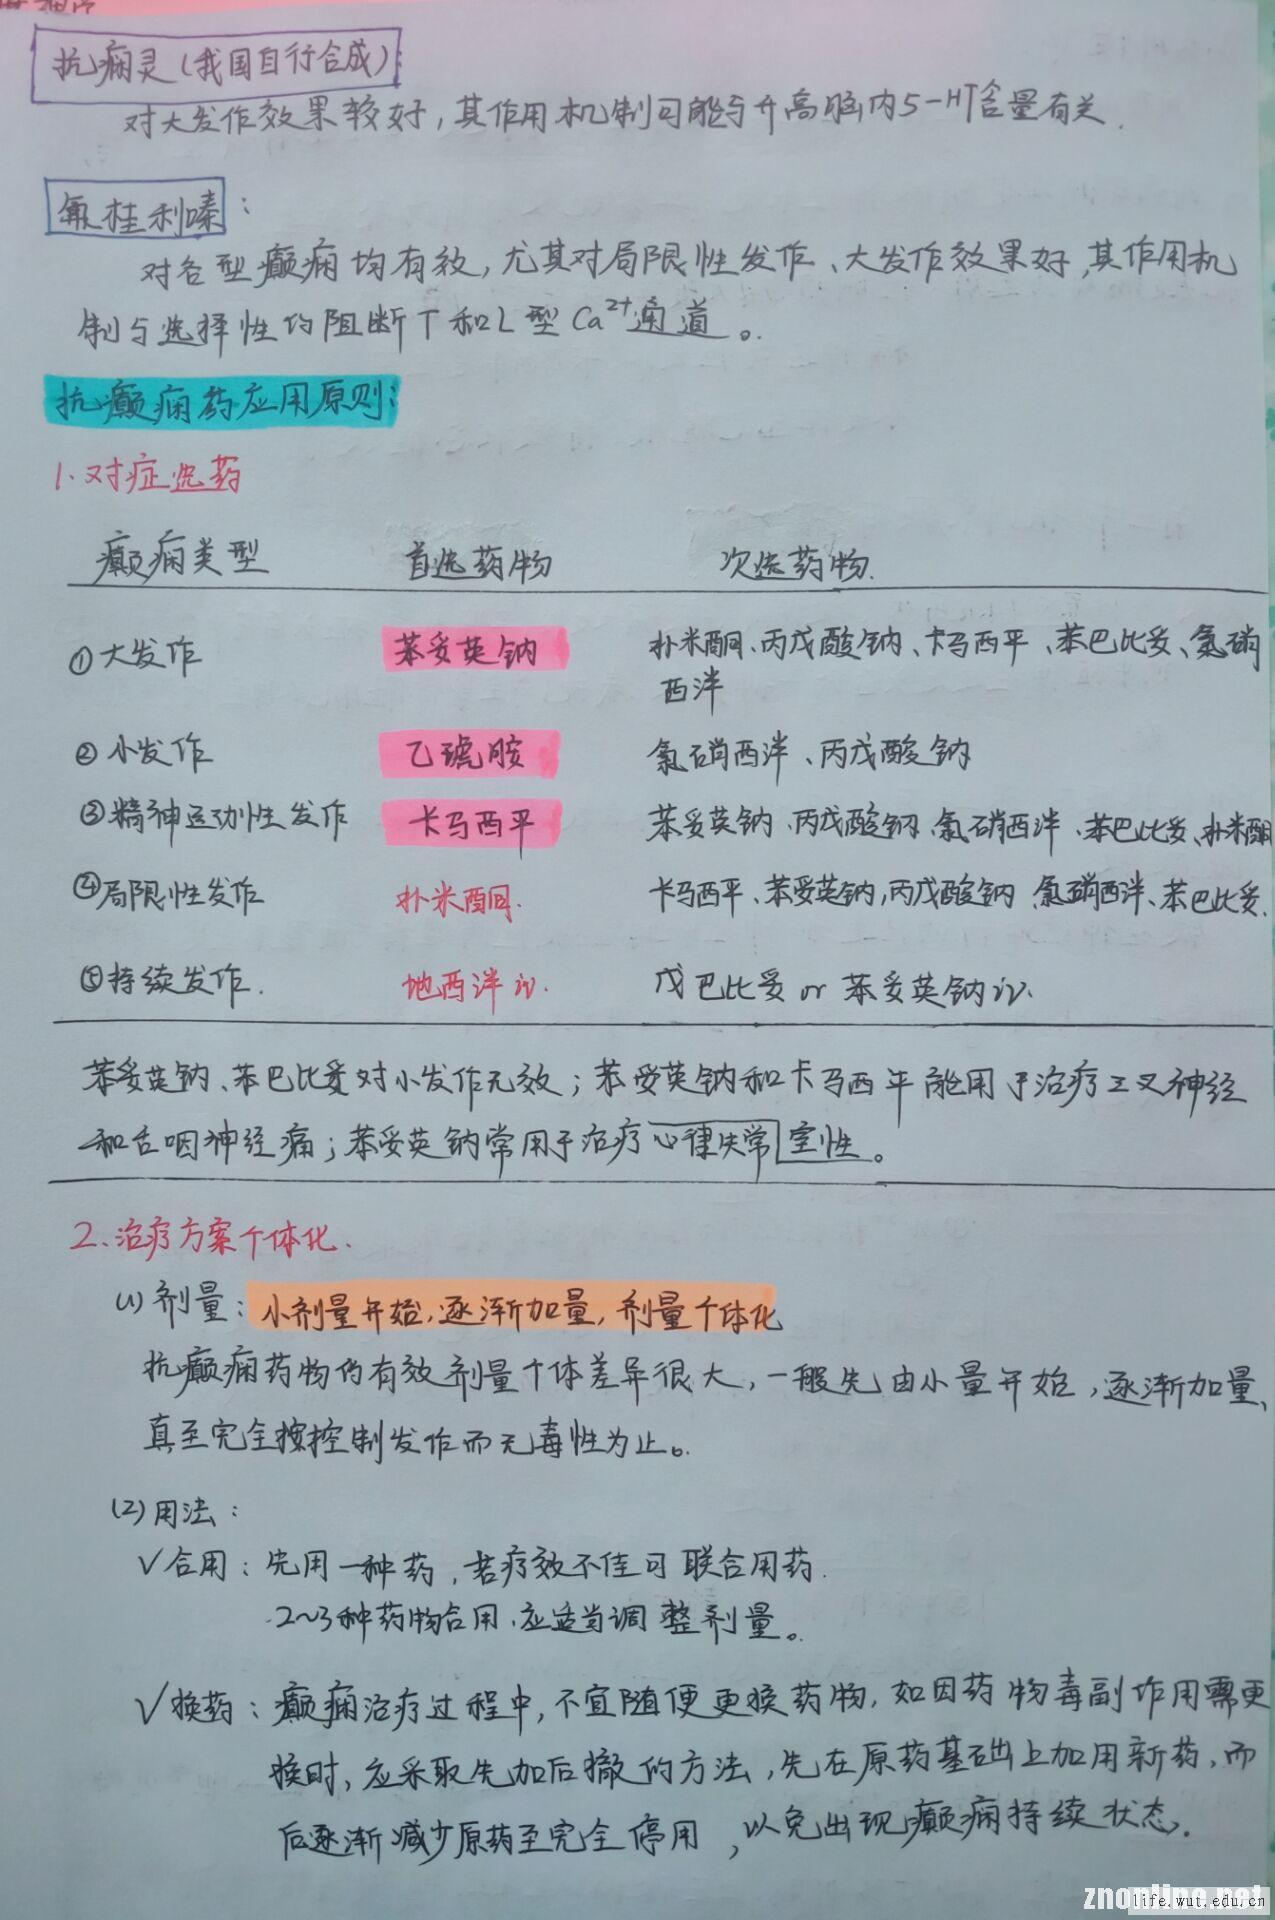 抗痫灵(我国自行合成):
对大发作效果较好,其作用机制可能与升高脑内5-HT含量有关.
氟桂利嗪:
对各型癫痫均有效,尤其对局限性发作、大发作效果好,其作用机
制与选择性的阻断T和L型Ca²⁺通道。
抗癫痫药应用原则:
1.对症选药
癫痫类型 首选药物 次选药物.
①大发作 苯妥英钠 扑米酮、丙戊酸钠、卡马西平、苯巴比妥、氯硝
西泮
②小发作 乙琥胺 氯硝西泮、丙戊酸钠
③精神运动性发作 卡马西平 苯妥英钠、丙戊酸钠、氯硝西泮、苯巴比妥、扑米酮
④局限性发作 扑米酮. 卡马西平、苯妥英钠,丙戊酸钠、氯硝西泮、苯巴比妥.
⑤持续发作. 地西泮iv. 戊巴比妥 or 苯妥英钠iv.
苯妥英钠、苯巴比妥对小发作无效;苯妥英钠和卡马西平能用于治疗三叉神经
和舌咽神经痛;苯妥英钠常用于治疗心律失常室性。
2.治疗方案个体化.
(1)剂量:小剂量开始,逐渐加量,剂量个体化
抗癫痫药物的有效剂量个体差异很大,一般先由小量开始,逐渐加量、
直至完全按控制发作而无毒性为止。
(2)用法:
√合用:先用一种药,若疗效不佳可联合用药.
2~3种药物合用.应适当调整剂量。
√换药:癫痫治疗过程中,不宜随便更换药物,如因药物毒副作用需更
换时,应采取先加后撤的方法,先在原药基础上加用新药,而
后逐渐减少原药至完全停用,以免出现癫痫持续状态.
znonline.net
life.wut.edu.cn